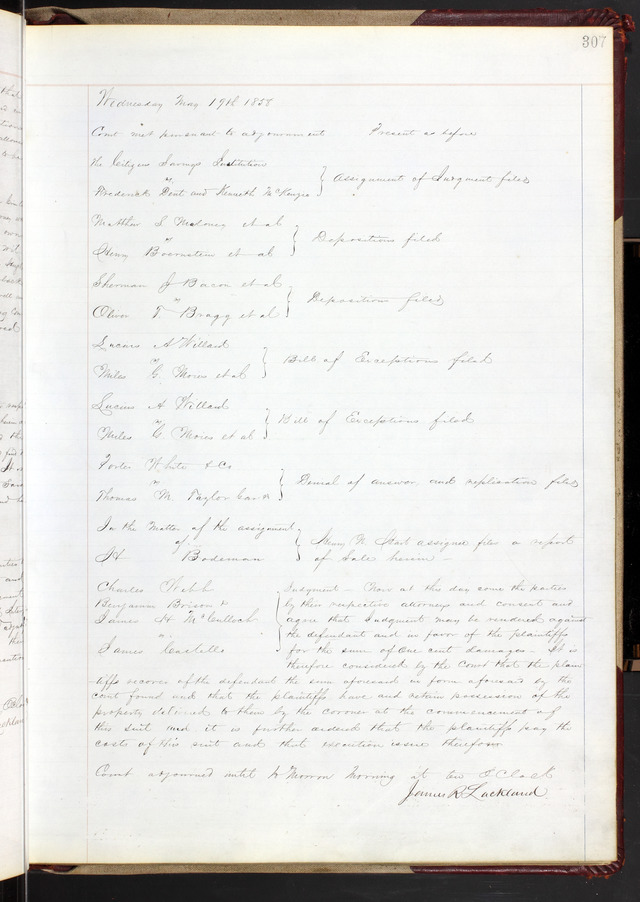 307
Wednesday May 19th 1858
Court met pursuant to adjournment Present as before
The Citizens Savings Institution
vs
Frederick Dent and Kenneth McKenzie } Assignment of Judgment filed
Matthew S Moloney et al
vs
Henry Boernstein et al } Depositions filed
Sherman J Bacon et al
vs
Oliver T. Bragg et al } Depositions filed
Lucius A Willard
vs
Miles G. Moies et al } Bill of Exceptions filed
Lucius A Willard
vs
Miles G. Moies et al } Bill of Exceptions filed
White & Co
vs
Thomas M. Taylor } Denial of answer and replication filed
In the Matter of the assignment
of
H Bodeman } Henry N Hart assignee files a report
of Sale herein
Charles Gibb
Benjamin Brison &
James H McCulloch
vs
James Castello
} Judgment – Now at this day come the parties
by their respective attorneys and consent and
agree that Judgment may be rendered against
the defendant and in favor of the plaintiffs
for the sum of One cent damages – It is
therefore considered by the Court that the plain
tiffs recover of the defendant the sum aforesaid in form aforesaid by the
court found and that the plaintiffs have and retain possession of the
property delivered to them by the coroner at the commencement of
this suit and it is further ordered that the plaintiffs pay the
costs of this suit and that execution issue therefor
Court adjourned until to Morrow Morning at ten O Clock
James R Lackland